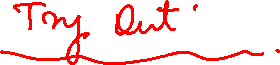 Try Out